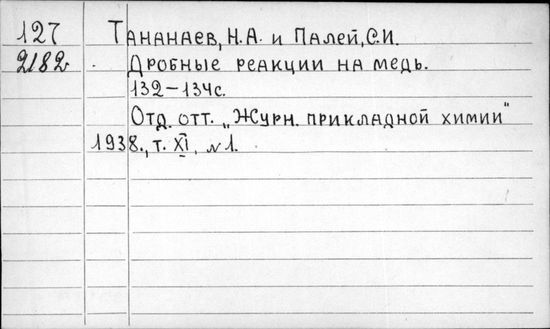 127 Тананаев, Н.А. и Палей, С.И.
2182 Дробные реакции на медь.
132-134с.
Отд. отт. „Журн. прикладной химии"
1938., т. XI, №1.